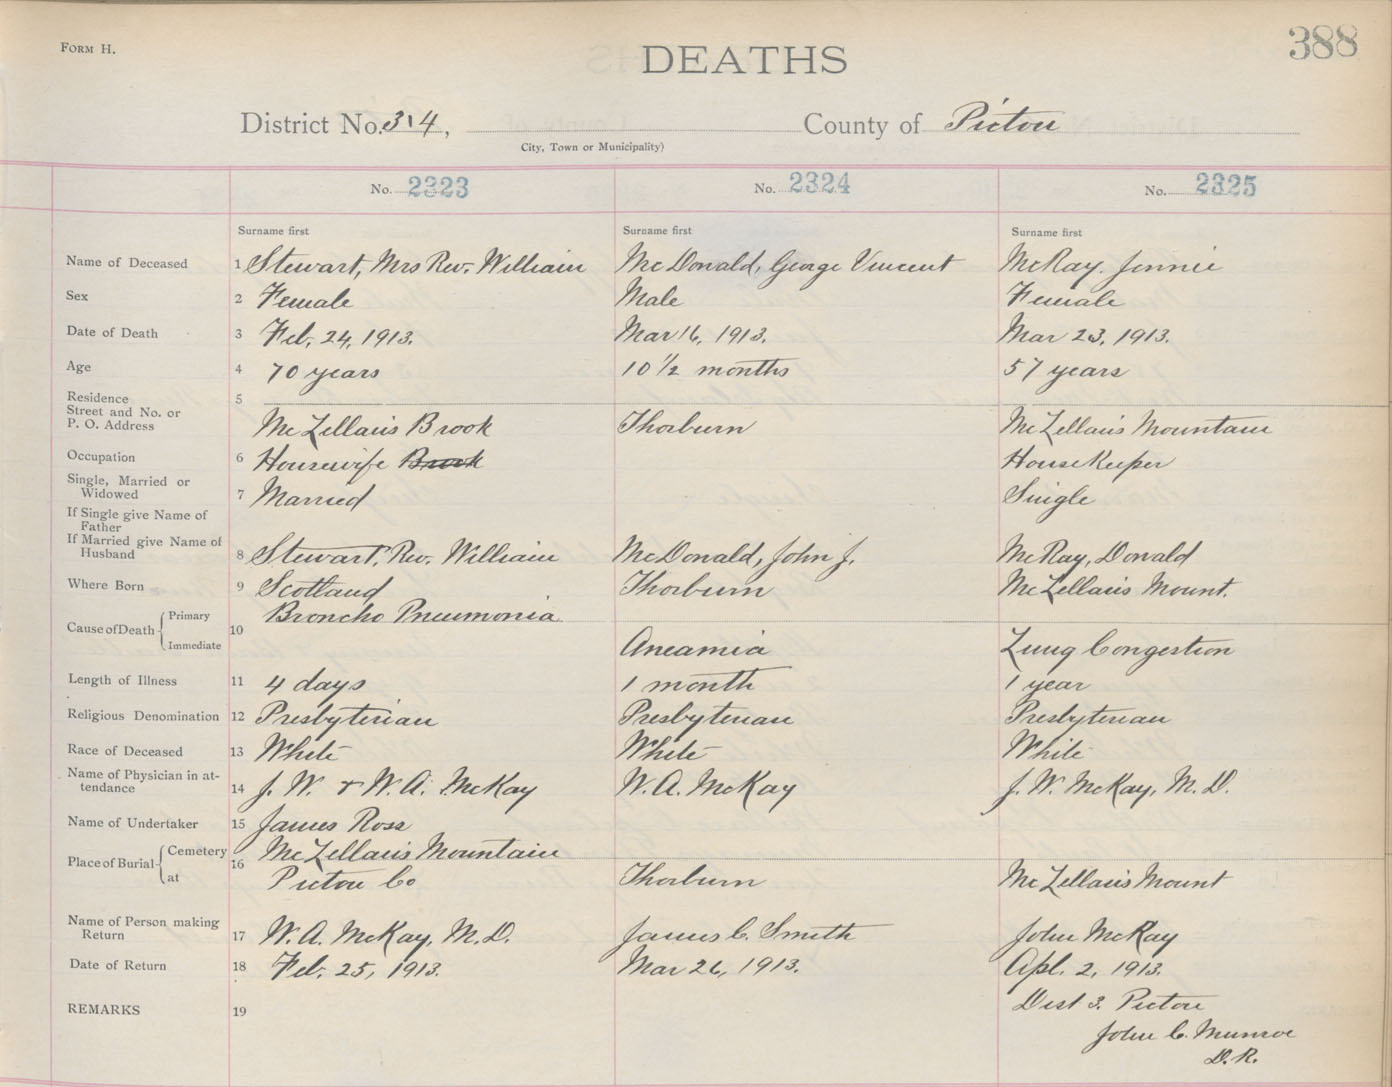 FORM H.
DEATHS
388
District No. 314, County of Pictou
City, Town or Municipality)
No. 2323 No. 2324 No. 2325
Surname first Surname first Surname first
Name of Deceased 1 Stewart, Mrs Rev. William McDonald, George Vincent McRay, Jennie
Sex 2 Female Male Female
Date of Death 3 Feb. 24, 1913. Mar 16, 1913. Mar 23, 1913.
Age 4 70 years 10 1/2 months 57 years
Residence 5
Street and No. or
P. O. Address McLellan's Brook Thorburn McLellan's Mountain
Occupation 6 Housewife Brook HouseKeeper
Single, Married or
Widowed 7 Married Single
If Single give Name of
Father
If Married give Name of
Husband 8 Stewart, Rev. William McDonald, John J. McRay, Donald
Where Born 9 Scotland Thorburn McLellan's Mount.
Cause of Death Primary 10 Broncho Pneumonia
Immediate Aneamia Lung Congestion
Length of Illness 11 4 days 1 month 1 year
Religious Denomination 12 Presbyterian Presbyterian Presbyterian
Race of Deceased 13 White White White
Name of Physician in at-
tendance 14 J. W. & W. A. McKay W. A. McKay J. W. McKay, M. D.
Name of Undertaker 15 James Ross
Place of Burial Cemetery 16 McLellan's Mountain
at Pictou Co Thorburn McLellan's Mount
Name of Person making
Return 17 W. A. McKay, M. D. James C. Smith John McRay
Date of Return 18 Feb. 25, 1913. Mar 26, 1913. Apl. 2, 1913.
REMARKS 19 Dist 3. Pictou
John C. Munroe
D. R.